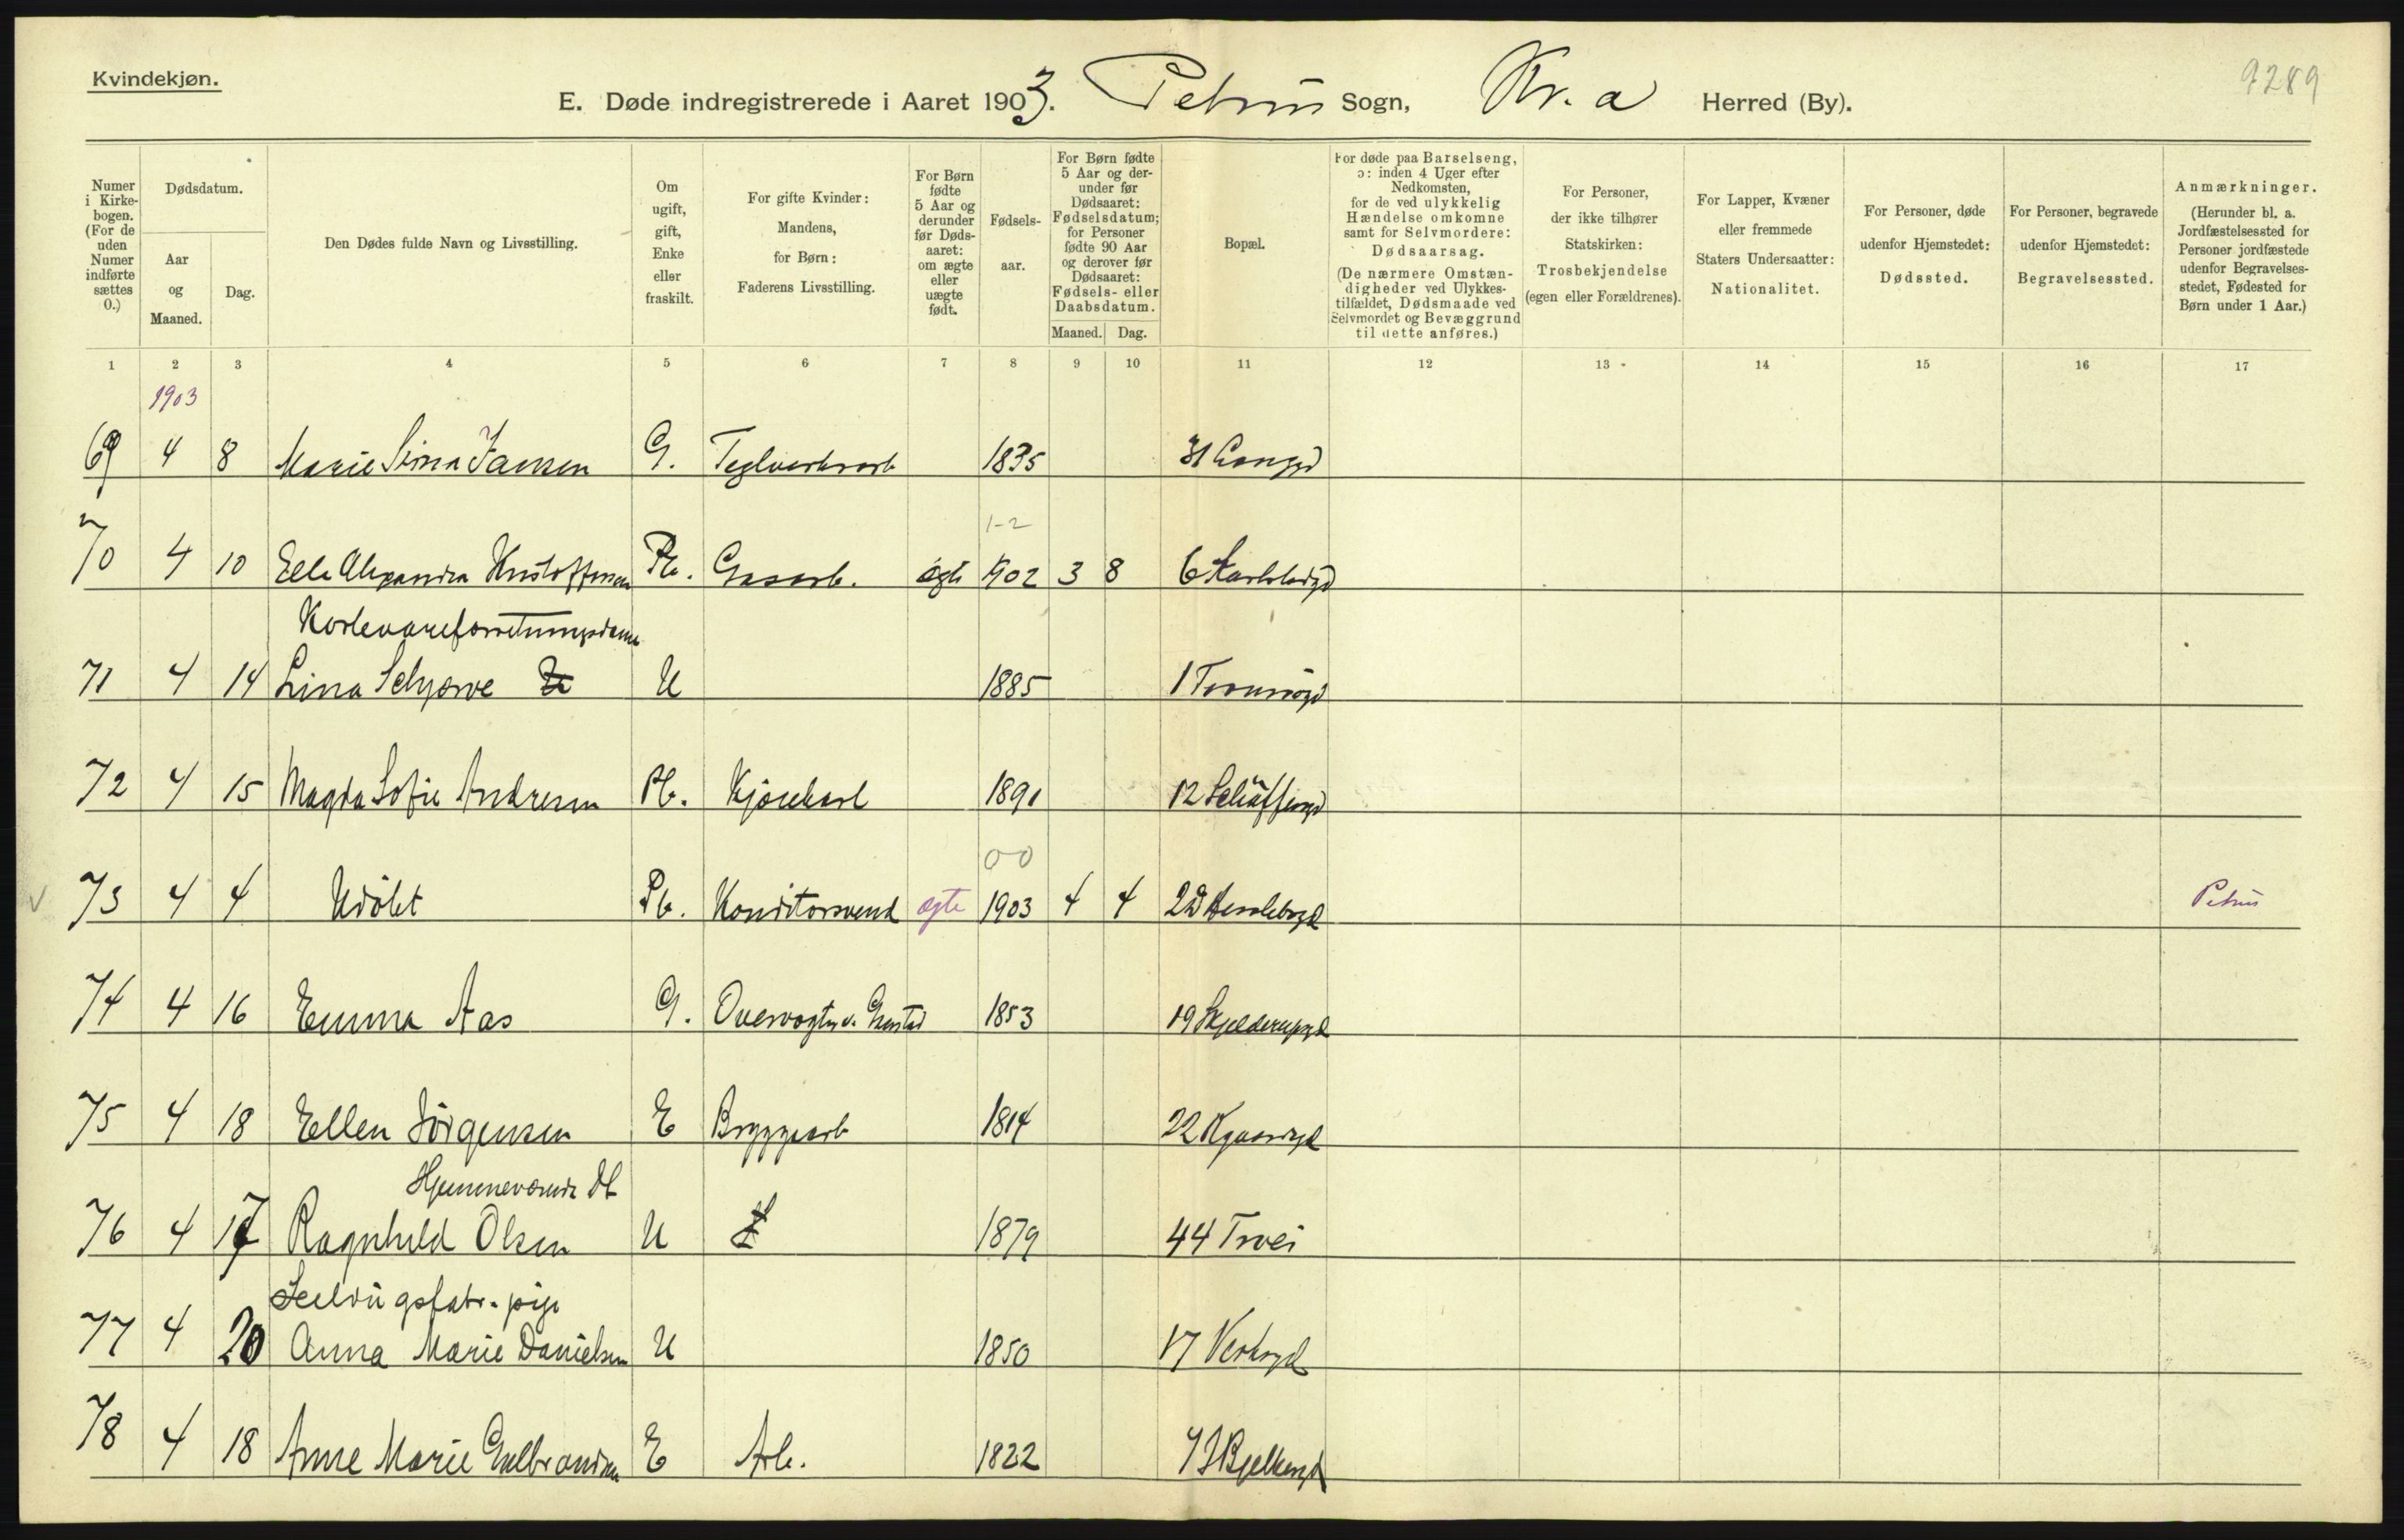 Kvindekjøn.
9289
E. Døde indregistrerede i Aaret 1903. Petrus Sogn, Kr.a Herred (By).
Numer i Kirke-bogen. (For de uden Numer indførte sættes 0.)
Dødsdatum.
Aar og Maaned.
Dag.
Den Dødes fulde Navn og Livsstilling.
Om ugift, gift, Enke eller fraskilt.
For gifte Kvinder: Mandens, for Børn: Faderens Livsstilling.
For Børn fødte 5 Aar og derunder før Døds-aaret: om ægte eller uægte født.
Fødsels-aar.
For Børn fødte 5 Aar og der-under før Dødsaaret: Fødselsdatum; for Personer fødte 90 Aar og derover før Dødsaaret: Fødsels- eller Daabsdatum.
Maaned. Dag.
Bopæl.
For døde paa Barselseng, ɔ: inden 4 Uger efter Nedkomsten, for de ved ulykkelig Hændelse omkomne samt for Selvmordere: Dødsaarsag. (De nærmere Omstæn-digheder ved Ulykkes-tilfældet, Dødsmaade ved Selvmordet og Bevæggrund til dette anføres.)
For Personer, der ikke tilhører Statskirken: Trosbekjendelse (egen eller Forældrenes).
For Lapper, Kvæner eller fremmede Staters Undersaatter: Nationalitet.
For Personer, døde udenfor Hjemstedet: Dødssted.
For Personer, begravede udenfor Hjemstedet: Begravelsessted.
Anmærkninger. (Herunder bl. a. Jordfæstelsessted for Personer jordfæstede udenfor Begravelses-stedet, Fødested for Børn under 1 Aar.)
1 2 3 4 5 6 7 8 9 10 11 12 13 14 15 16 17
1903
69 4 8 Marie Sina Jansen G. Teglverksarb 1835 31
1-2
70 4 10 Alexandra Kristoffersen Pb. Gasarb. ægte 1902 3 8 6
71 4 14 Lina U 1885 1 Tromsøgd
72 4 15 Magda Sofie Andresen Pb. Kjørekarl 1891 12
00
73 4 4 Udøbt Pb. Konditorsvend ægte 1903 4 4 Petrus
74 4 16 Emma Aas G. Overvogter v. 1853 19 Skjelderupgd
75 4 18 Ellen Jørgensen E Bryggearb 1814 22
Hjemmeværende Dt
76 4 17 Ragnhild Olsen U 1879 44 Tvei
pige
77 4 20 Anna Marie Danielsen U 1850 17 Verksgd
78 4 18 Anne Marie Gulbrandsen E Arb. 1822